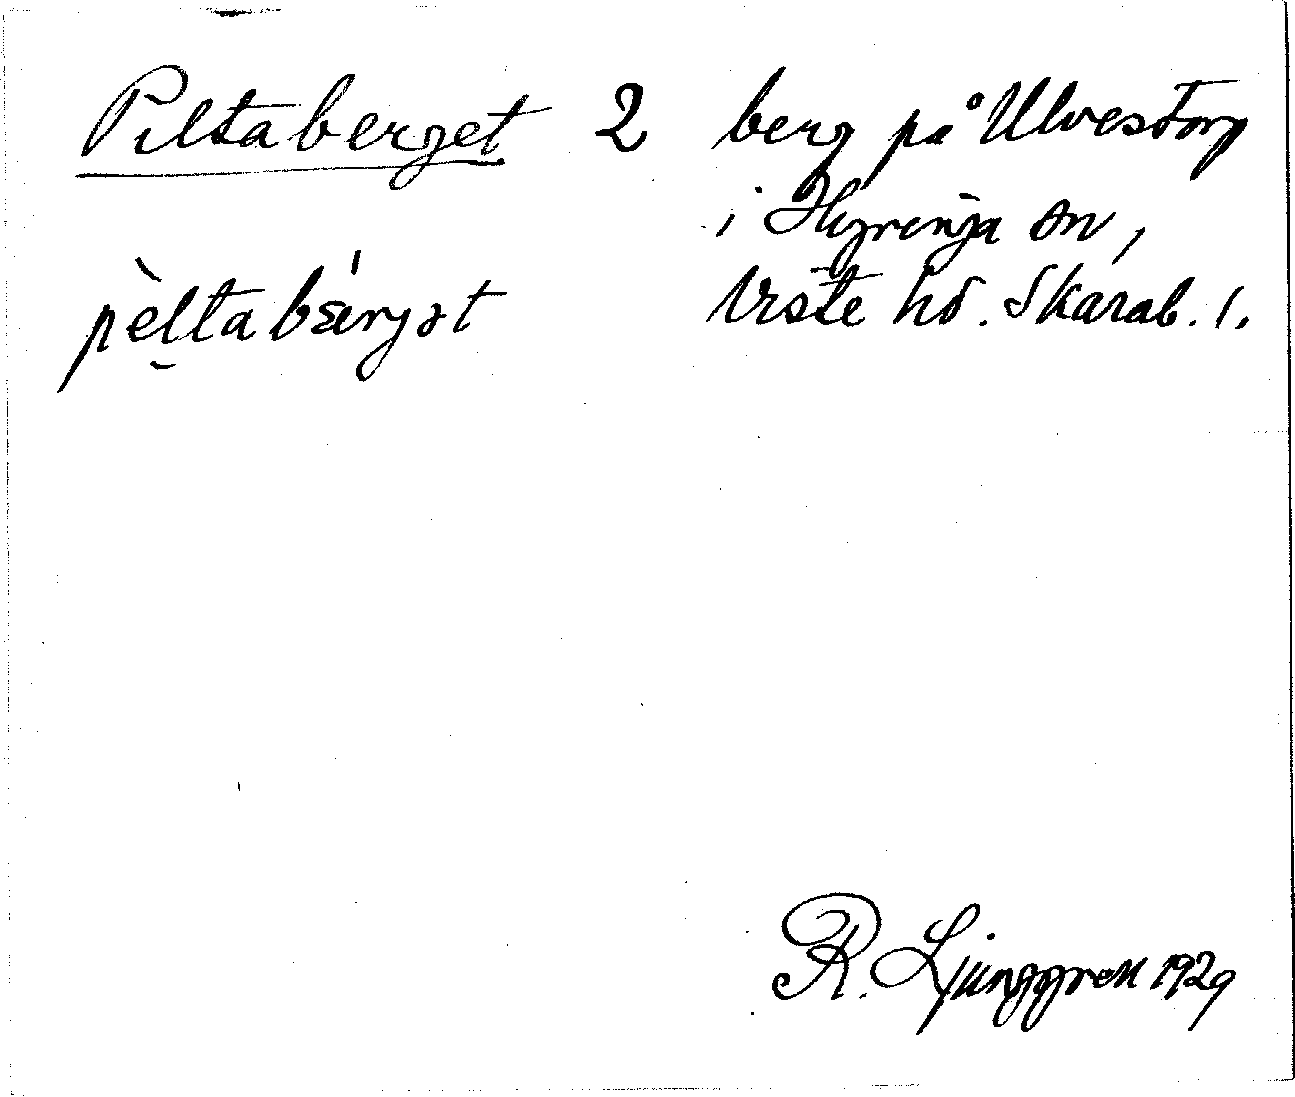 Piltaberget 2 berg på Ulvestorp
i Hyringa sn,
Viste hd. Skarab. l.
pèltabǽrjət
R. Ljunggren 1929